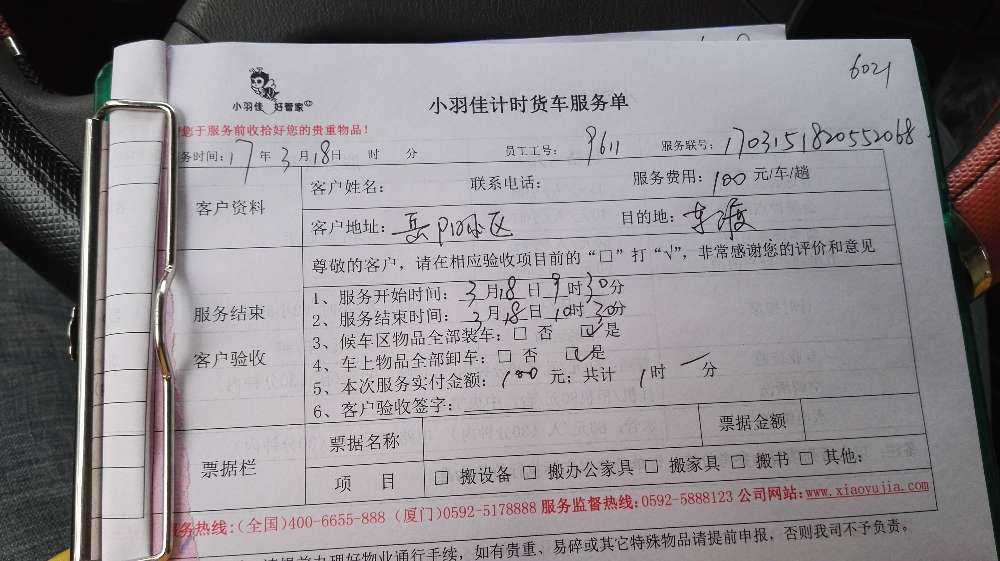 6021
小羽佳 好管家
小羽佳计时货车服务单
您于服务前收拾好您的贵重物品！
务时间：17年3月18日 时 分 员工工号：9611 服务联号：1703151820552068
客户资料
客户姓名： 联系电话： 服务费用：100元/车/趟
客户地址： 小区 目的地：
尊敬的客户，请在相应验收项目前的“□”打“√”，非常感谢您的评价和意见
服务结束
客户验收
1、服务开始时间：3月18日9时30分
2、服务结束时间：3月18日10时30分
3、候车区物品全部装车：□ 否 ☑ 是
4、车上物品全部卸车：□ 否 ☑ 是
5、本次服务实付金额：100元；共计 1时 一 分
6、客户验收签字：
票据栏
票据名称 票据金额
项 目 □ 搬设备 □ 搬办公家具 □ 搬家具 □ 搬书 □ 其他：
务热线：（全国）400-6655-888（厦门）0592-5178888 服务监督热线：0592-5888123 公司网站：www.xiaoyujia.com
请提前办理好物业通行手续，如有贵重、易碎或其它特殊物品请提前申报，否则我司不予负责。